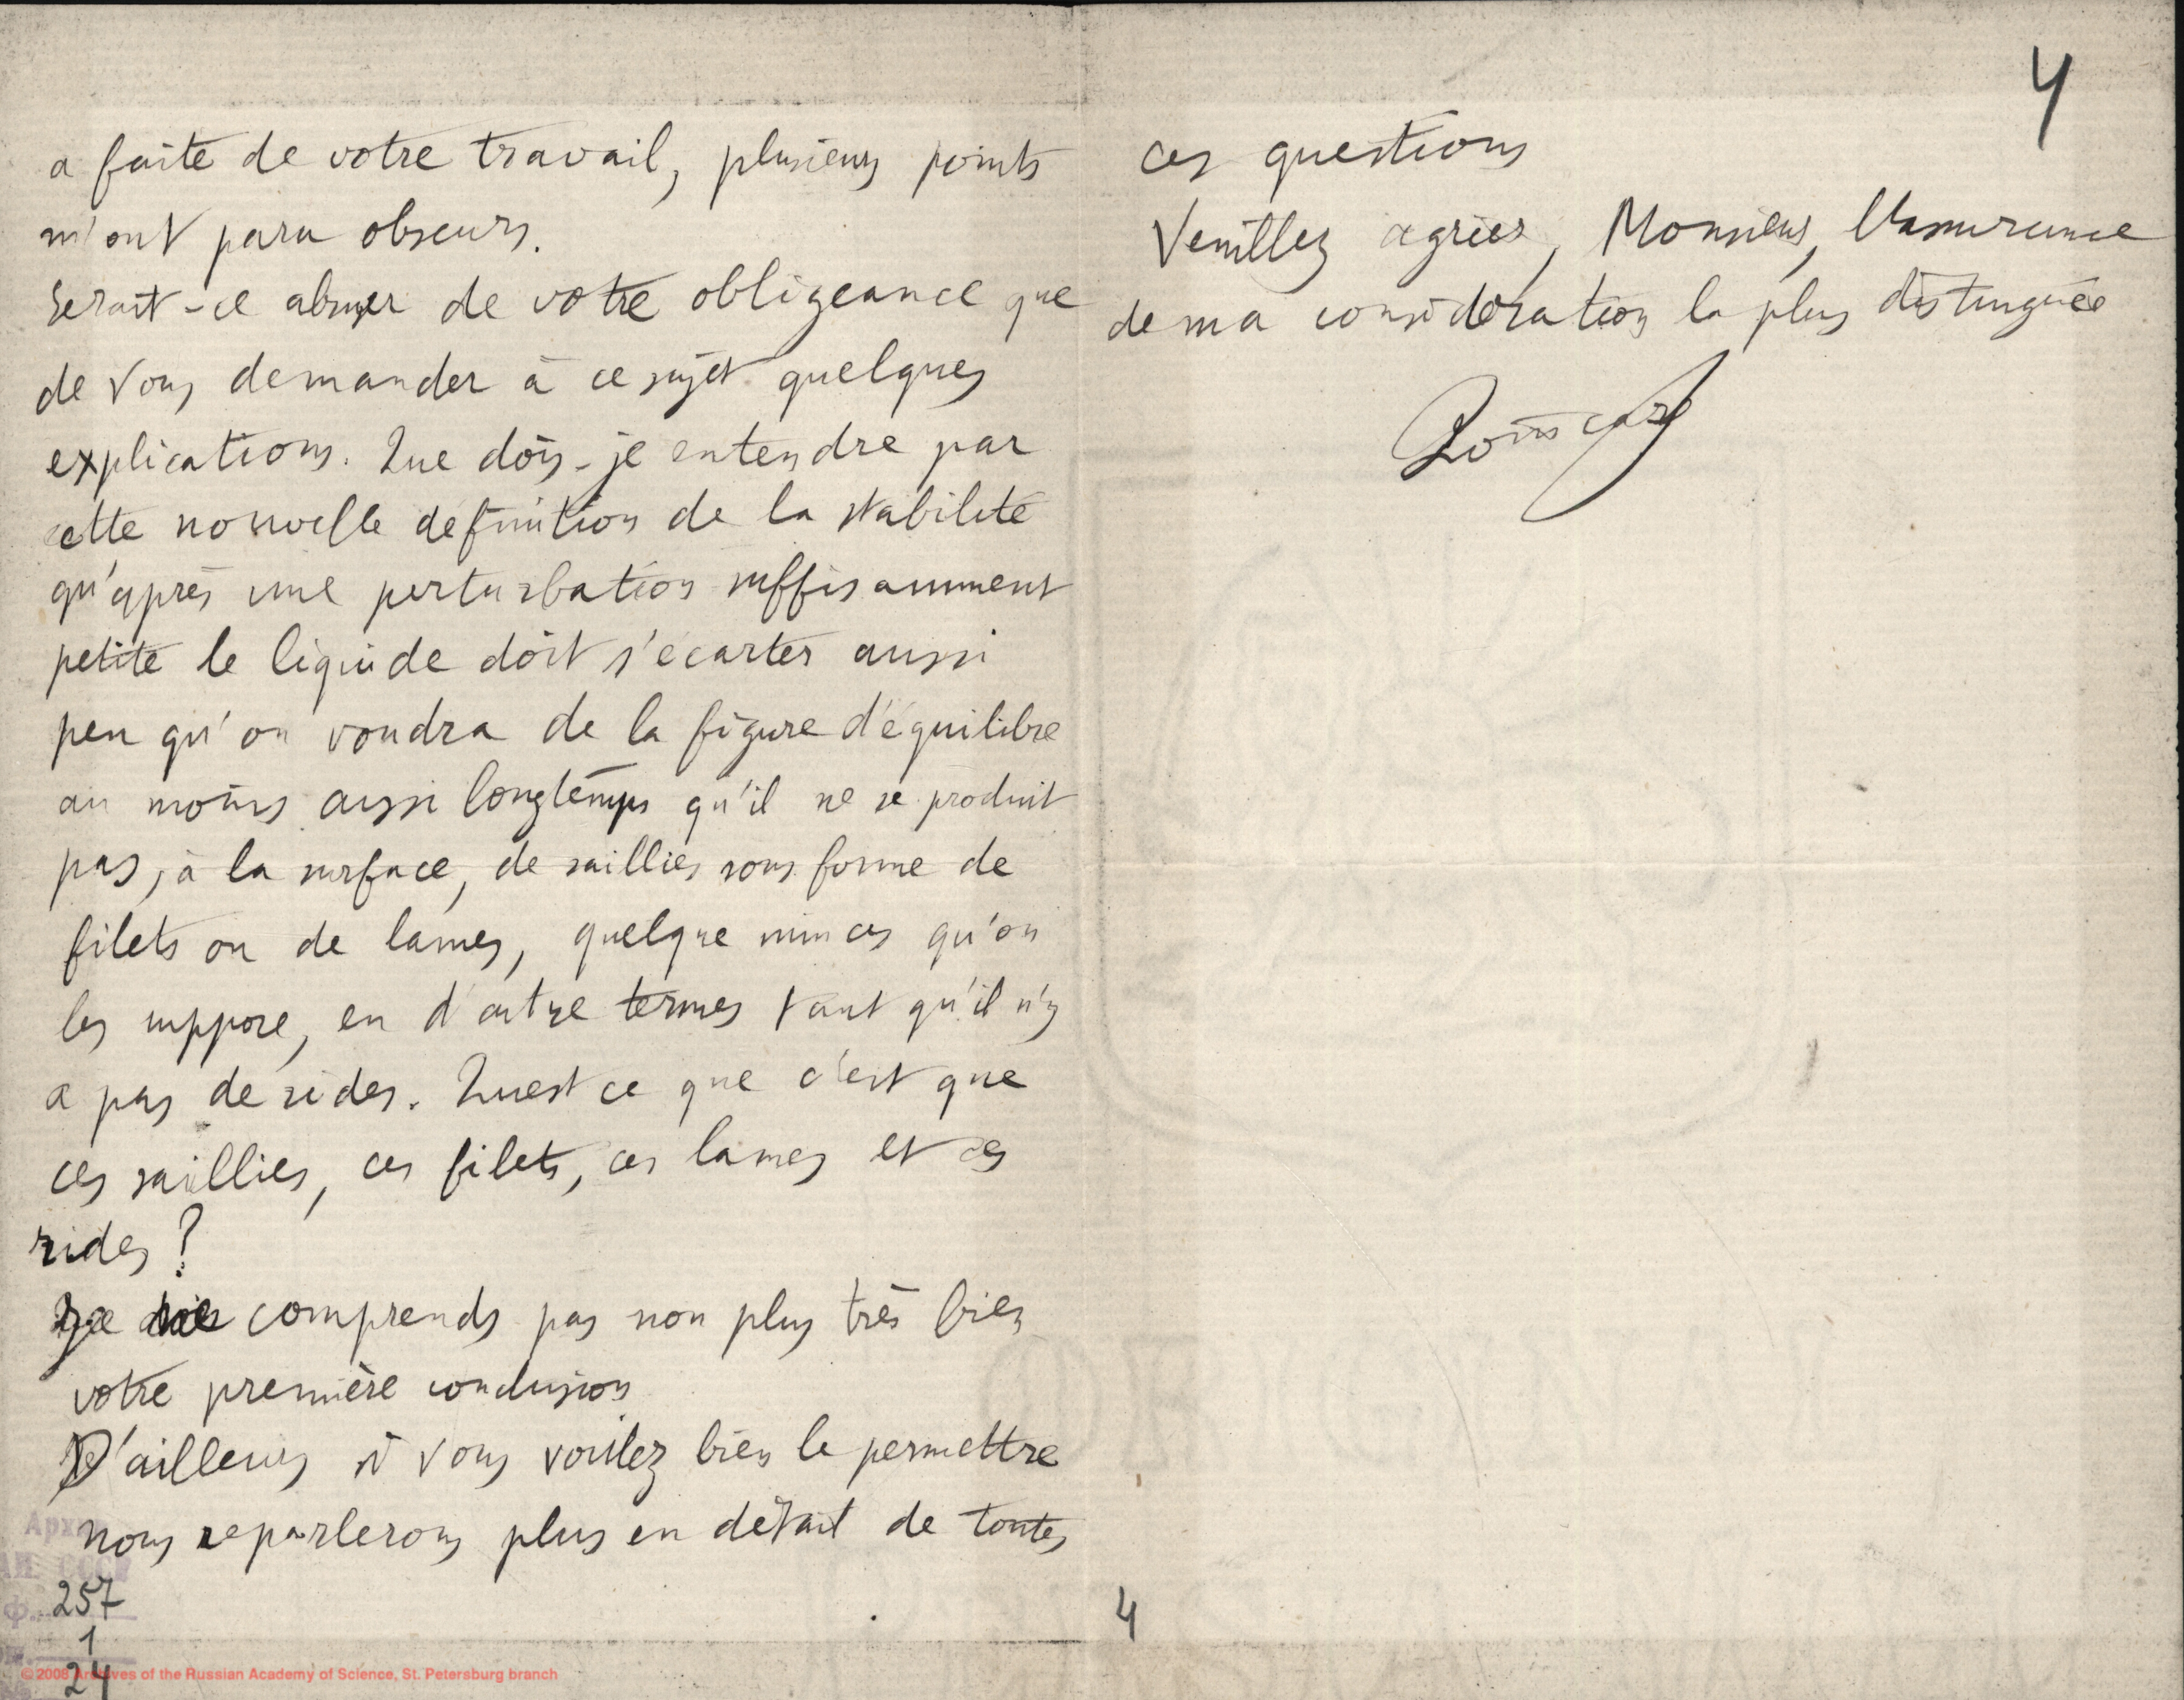 a faite de votre travail, plusieurs points
m'ont paru obscurs.
Serait-ce abuser de votre obligeance que
de vous demander à ce sujet quelques
explications. Que dois-je entendre par
cette nouvelle définition de la stabilité
qu'après une perturbation suffisamment
petite le liquide doit s'écarter aussi
peu qu'on voudra de la figure d'équilibre
au moins aussi longtemps qu'il ne se produit
pas, à la surface, de saillies sous forme de
filets ou de lames, quelque minces qu'on
les suppose, en d'autre termes tant qu'il n'y
a pas de rides. Quest ce que c'est que
ces saillies, ces filets, ces lames et ces
rides ?
Je ne comprends pas non plus très bien
votre première conclusion
D'ailleurs si vous voulez bien le permettre
nous reparlerons plus en détail de toutes
257
1
24
© 2008 Archives of the Russian Academy of Science, St. Petersburg branch
4
ces questions
Veuillez agréer, Monsieur, l'assurance
de ma considération la plus distinguée
Poincaré
4